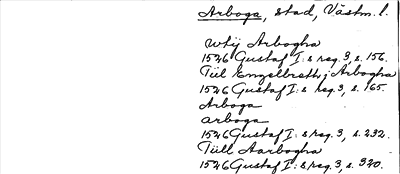 Arboga, stad, Västm. l.
wtij Arbogha
1526 Gustaf I:s reg. 3, s. 156.
Till Engelbreth j Arbogha
1526 Gustaf I:s reg. 3, s. 165.
Arboga
arboga
1526 Gustaf I:s reg. 3, s. 232.
Tüll Aarbogha
1526 Gustaf I:s reg. 3, s. 320.